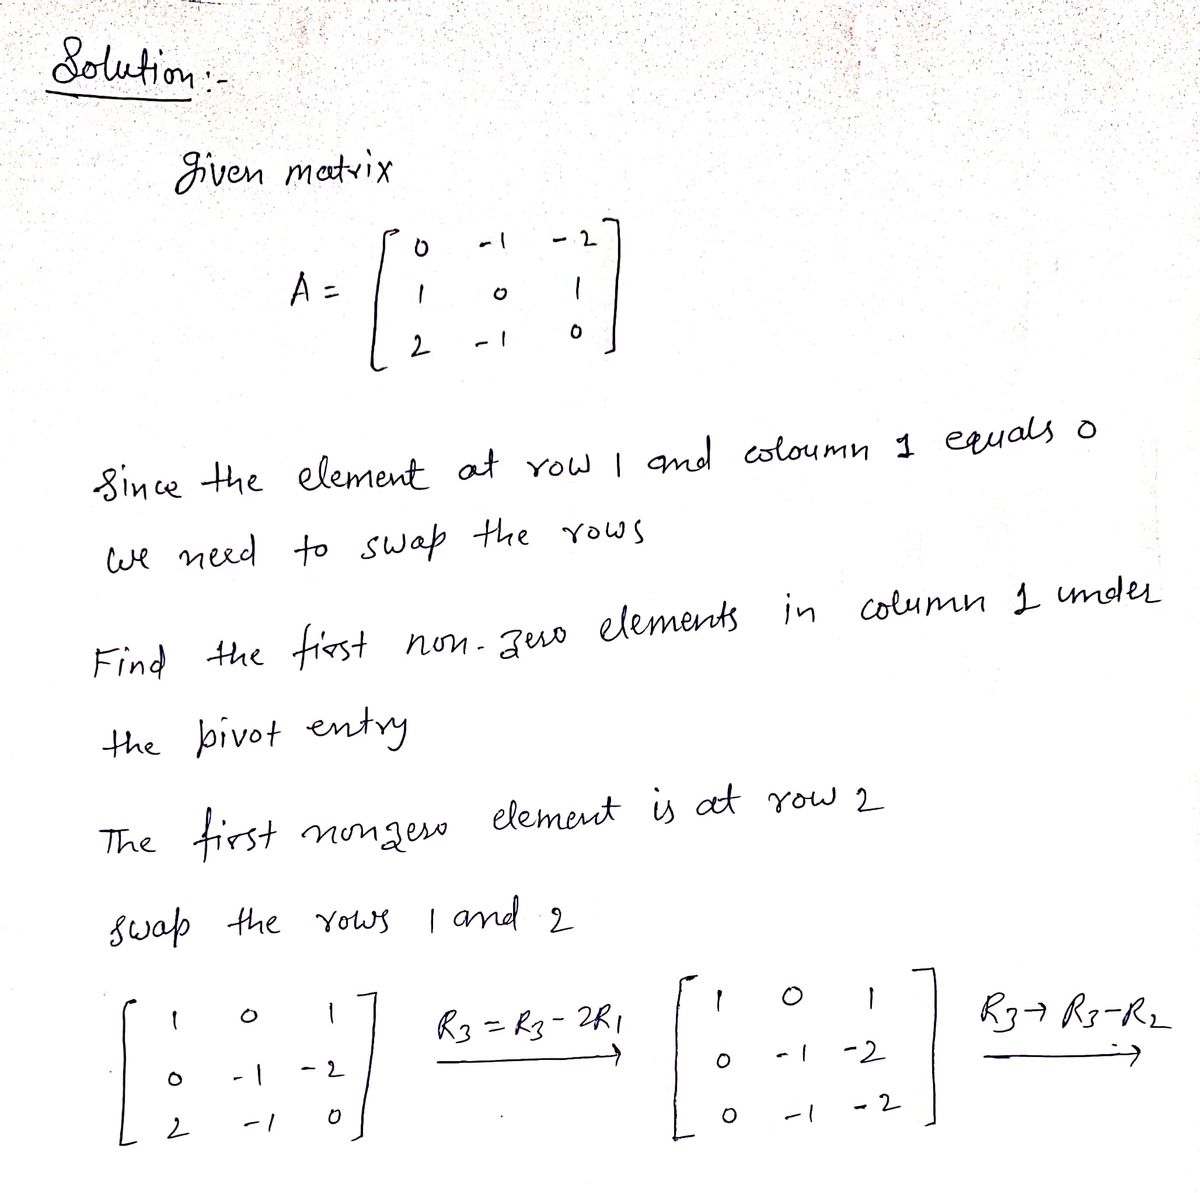 Solution:-
given matrix
A = [ 0 -1 -2
1 0 1
2 -1 0 ]
Since the element at row 1 and coloumn 1 equals 0
we need to swap the rows
Find the first non-zero elements in column 1 under
the pivot entry
The first nonzero element is at row 2
swap the rows 1 and 2
[ 1 0 1
0 -1 -2
2 -1 0 ] R3 = R3 - 2R1 → [ 1 0 1
0 -1 -2
0 -1 -2 ] R3 → R3-R2 →